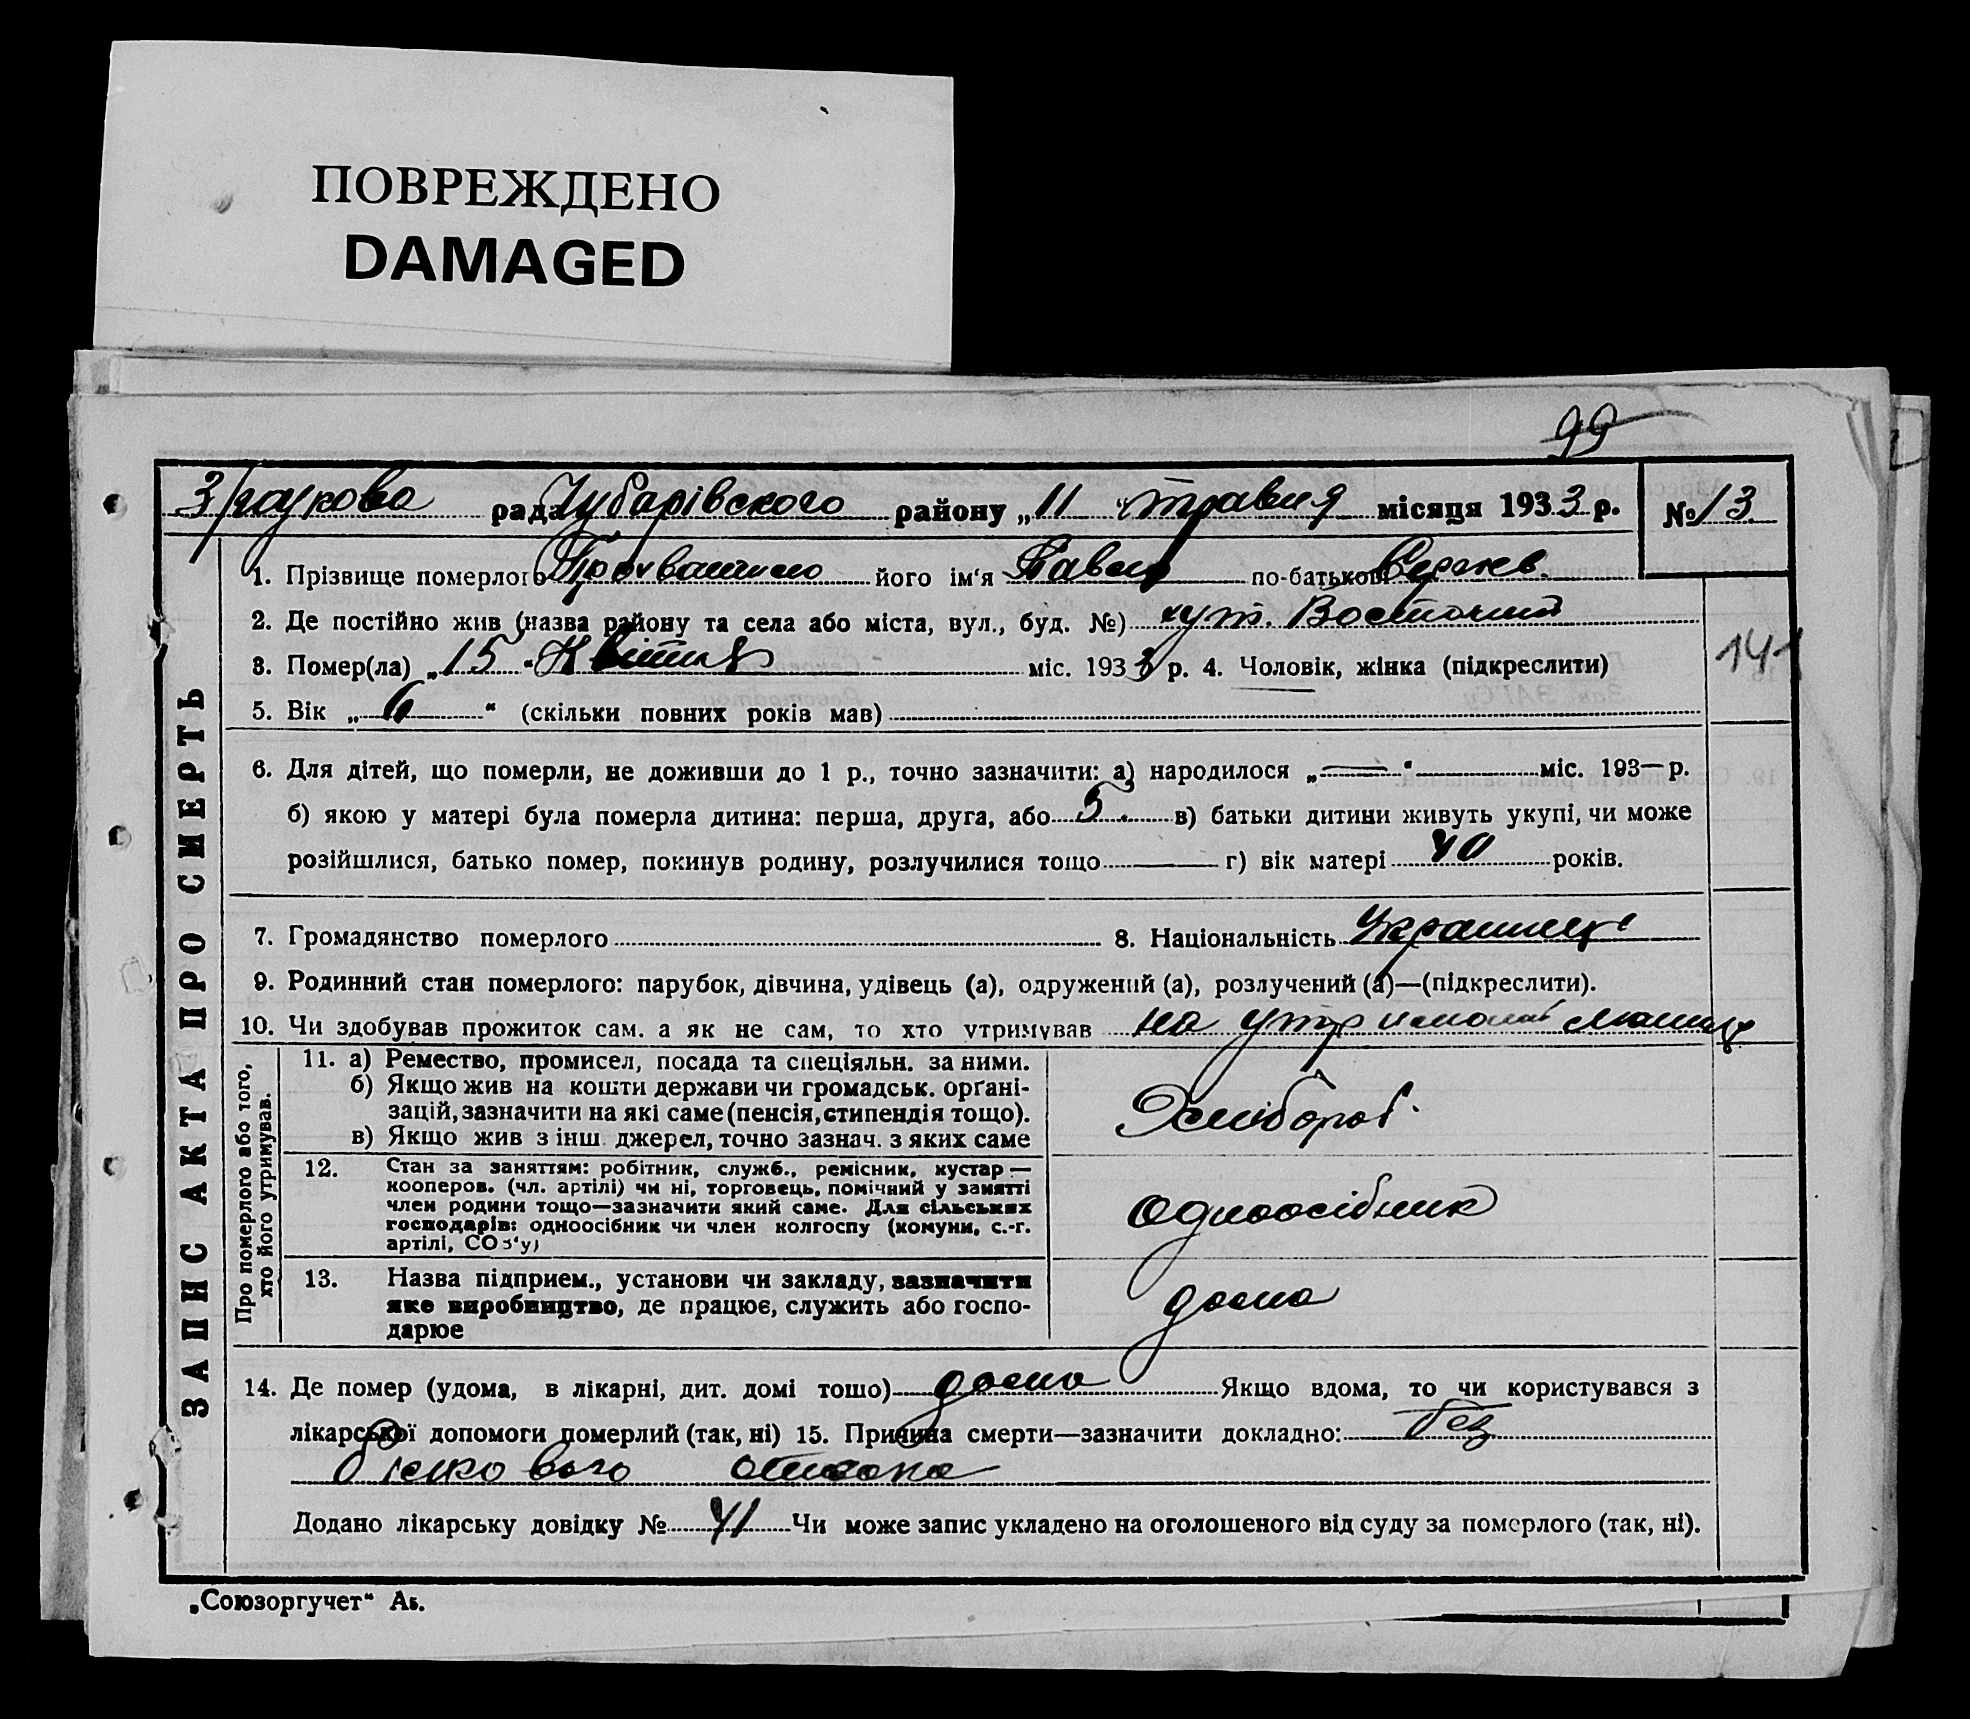 ПОВРЕЖДЕНО
DAMAGED
99
рада Чубарівського району „11“ травня місяця 1933 р. № 13
1. Прізвище померлого його ім‘я Павло по-батькові Сергієв.
2. Де постійно жив (назва району та села або міста, вул., буд. №) хут. Восточний
3. Помер(ла) „15“ Квітня міс. 1933 р. 4. Чоловік, жінка (підкреслити)
14-1
5. Вік „6“ (скільки повних років мав)
6. Для дітей, що померли, не доживши до 1 р., точно зазначити: а) народилося „—“ міс. 193— р.
б) якою у матері була померла дитина: перша, друга, або 5. в) батьки дитини живуть укупі, чи може
розійшлися, батько помер, покинув родину, розлучилися тощо — г) вік матері 40 років.
7. Громадянство померлого 8. Національність Українець
9. Родинний стан померлого: парубок, дівчина, удівець (а), одружений (а), розлучений (а)—(підкреслити).
10. Чи здобував прожиток сам, а як не сам, то хто утримував на утр
ЗАПИС АКТА ПРО СМЕРТЬ
Про померлого або того, хто його утримував.
11. а) Ремество, промисел, посада та спеціяльн. за ними.
б) Якщо жив на кошти держави чи громадськ. орґані-
зацій, зазначити на які саме (пенсія, стипендія тощо).
в) Якщо жив з інш. джерел, точно зазнач. з яких саме
Хлібороб.
12. Стан за заняттям: робітник, служб., ремісник, кустар—
кооперов. (чл. артілі) чи ні, торговець, помічний у занятті
член родини тощо—зазначити який саме. Для сільських
господарів: одноосібник чи член колгоспу (комуни, с.-г.
артілі, СОЗ‘у)
одноосібник
13. Назва підприєм., установи чи закладу, зазначити
яке виробництво, де працює, служить або госпо-
дарює
дома
14. Де помер (удома, в лікарні, дит. домі тошо) дома Якщо вдома, то чи користувався з
лікарської допомоги померлий (так, ні) 15. Причина смерти—зазначити докладно: без
білкового
Додано лікарську довідку № 41 Чи може запис укладено на оголошеного від суду за померлого (так, ні).
„Союзоргучет“ Аь.